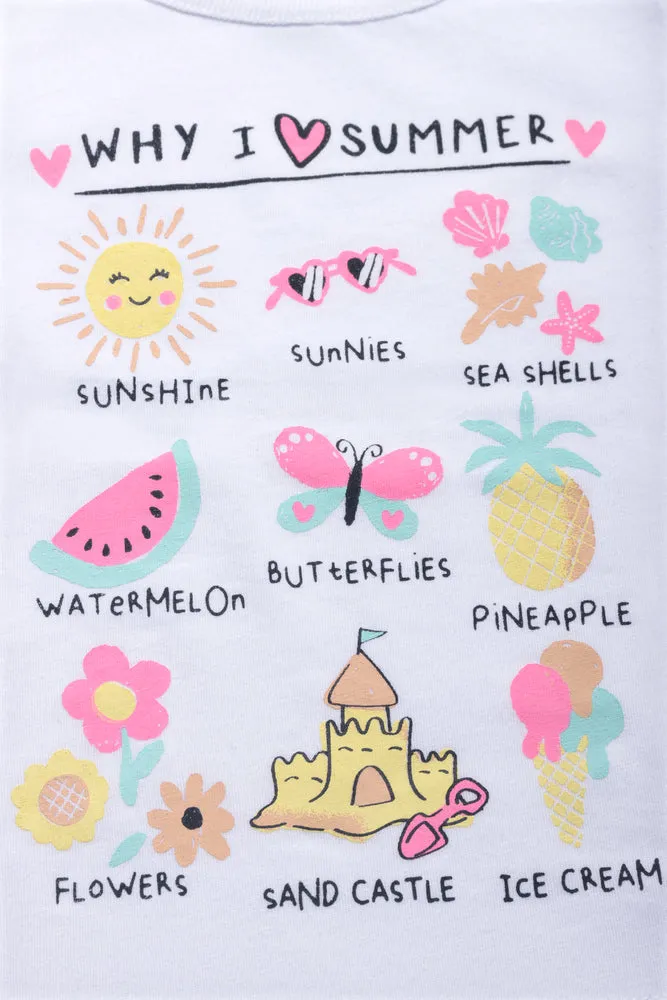 WHY I ♥ SUMMER
SUNSHInE
SUnNIES
SEA SHELLS
WATeRMELOn
BUTtERFLiES
PiNEAPPLE
FLOWERS
SAND CASTLE
ICE CREAM